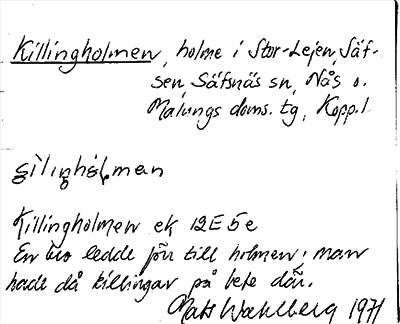 Killingholmen, holme i Stor-Lejen, Säf-
sen, Säfsnäs sn, Nås o.
Malungs doms. tg, Kopp. l.
Killingholmen ek 12E5e
En bro ledde förr till holmen; man
hade då killingar på bete där.
Mats Wahlberg 1971